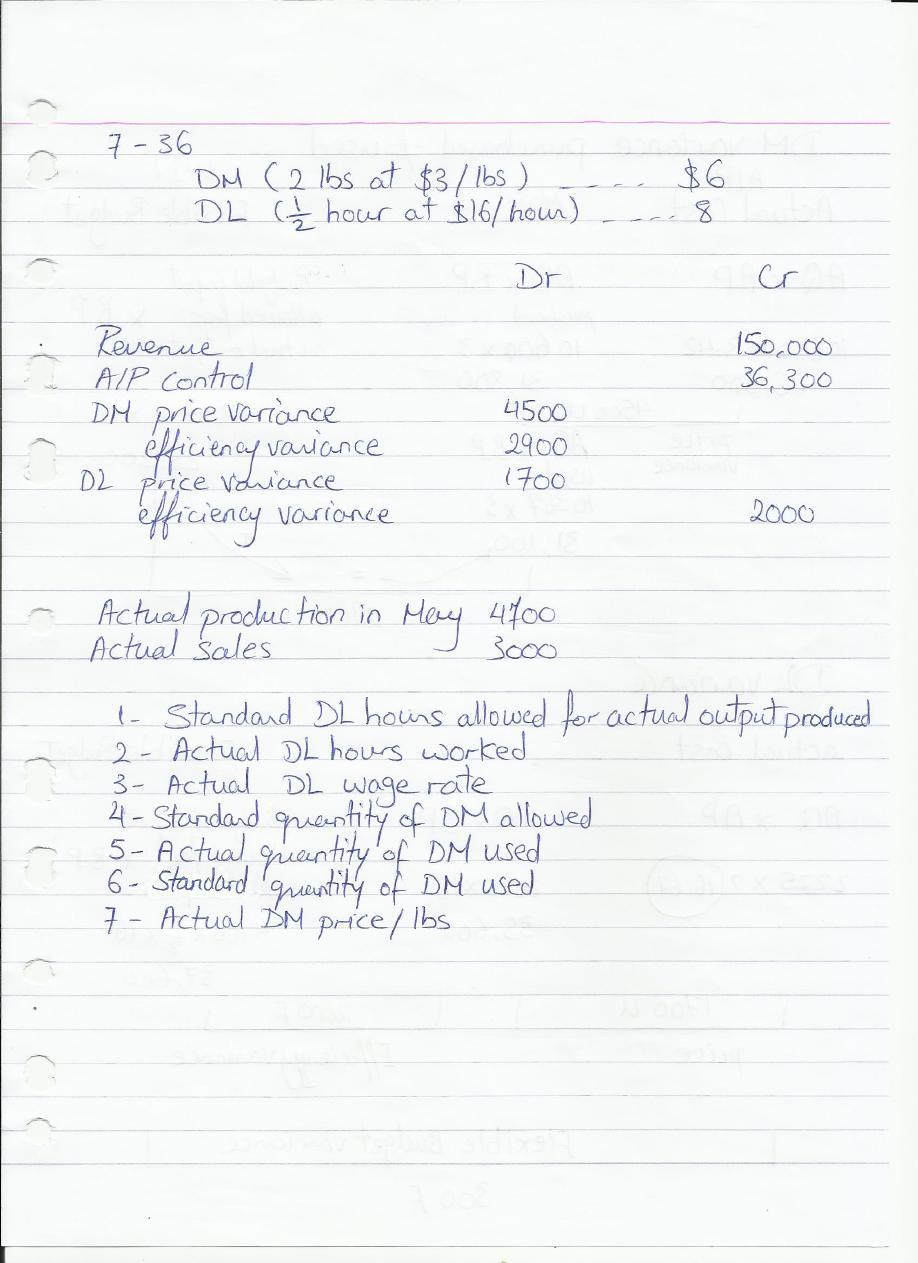 7-36
DM (2 lbs at $3/lbs) ---- $6
DL (1/2 hour at $16/hour) ---- 8
Dr Cr
Revenue 150,000
A/P control 36,300
DM price variance 4500
efficiency variance 2900
DL price variance 1700
efficiency variance 2000
Actual production in May 4700
Actual sales 3000
1- Standard DL hours allowed for actual output produced
2- Actual DL hours worked
3- Actual DL wage rate
4- Standard quantity of DM allowed
5- Actual quantity of DM used
6- Standard quantity of DM used
7- Actual DM price/lbs